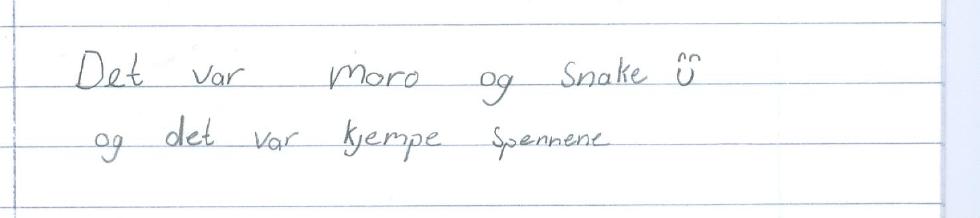 Det var moro og snake ü
og det var kjempe spennene